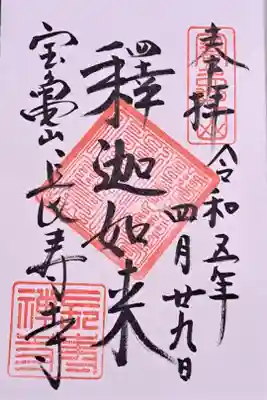 奉拝
令和五年
四月廿九日
釋迦如来
宝亀山長寿寺